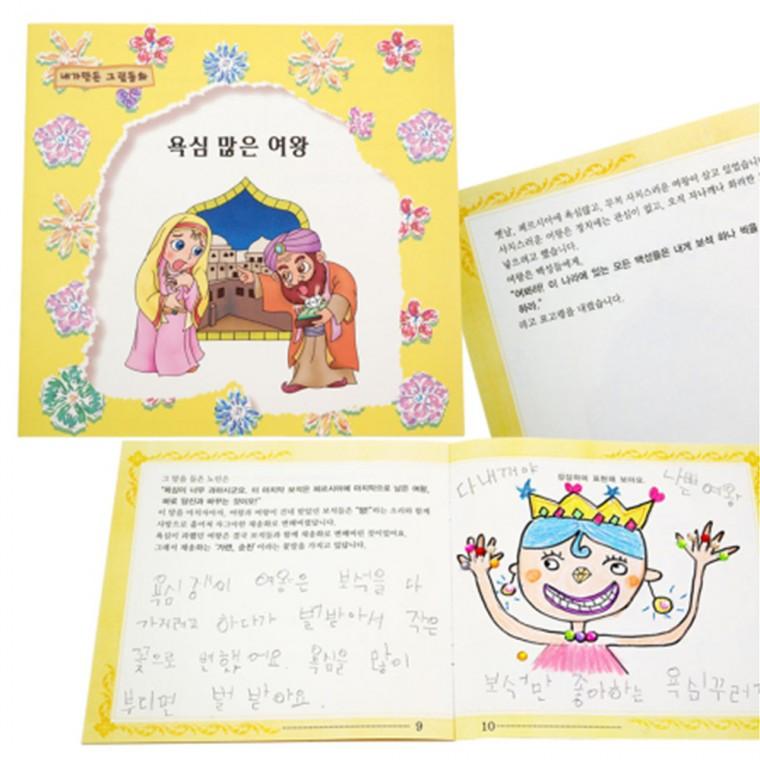 내가만든 그림동화
욕심 많은 여왕
옛날, 페르시아에 욕심많고, 무척 사치스러운 여왕이 살고 있었습니
사치스러운 여왕은 정치에는 관심이 없고, 오직 자나깨나 화려한
넣으려고 했습니다.
여왕은 백성들에게,
"여봐라! 이 나라에 있는 모든 백성들은 내게 보석 하나 씩을
하라."
라고 포고령을 내렸습니다.
그 말을 들은 노인은
"욕심이 너무 과하시군요. 이 마지막 보석은 페르시아에 마지막으로 남은 여왕,
바로 당신과 바꾸는 것이오!"
이 말을 마치자마자, 여왕과 여왕이 건네 받았던 보석들은 "펑!"하는 소리와 함께
사방으로 흩어져 자그마한 채송화로 변해버렸답니다.
욕심이 과했던 여왕은 결국 보석들과 함께 채송화로 변해버린 것이었어요.
그래서 채송화는 '가련, 순진'이라는 꽃말을 가지고 있답니다.
욕심쟁이 여왕은 보석을 다
가지려고 하다가 벌받아서 작은
꽃으로 변했어요. 욕심을 많이
부디면 벌 받아요.
9
상상하여 표현해 보아요.
다내꺼야
나쁜여왕
보석만 좋아하는 욕심꾸러기
10